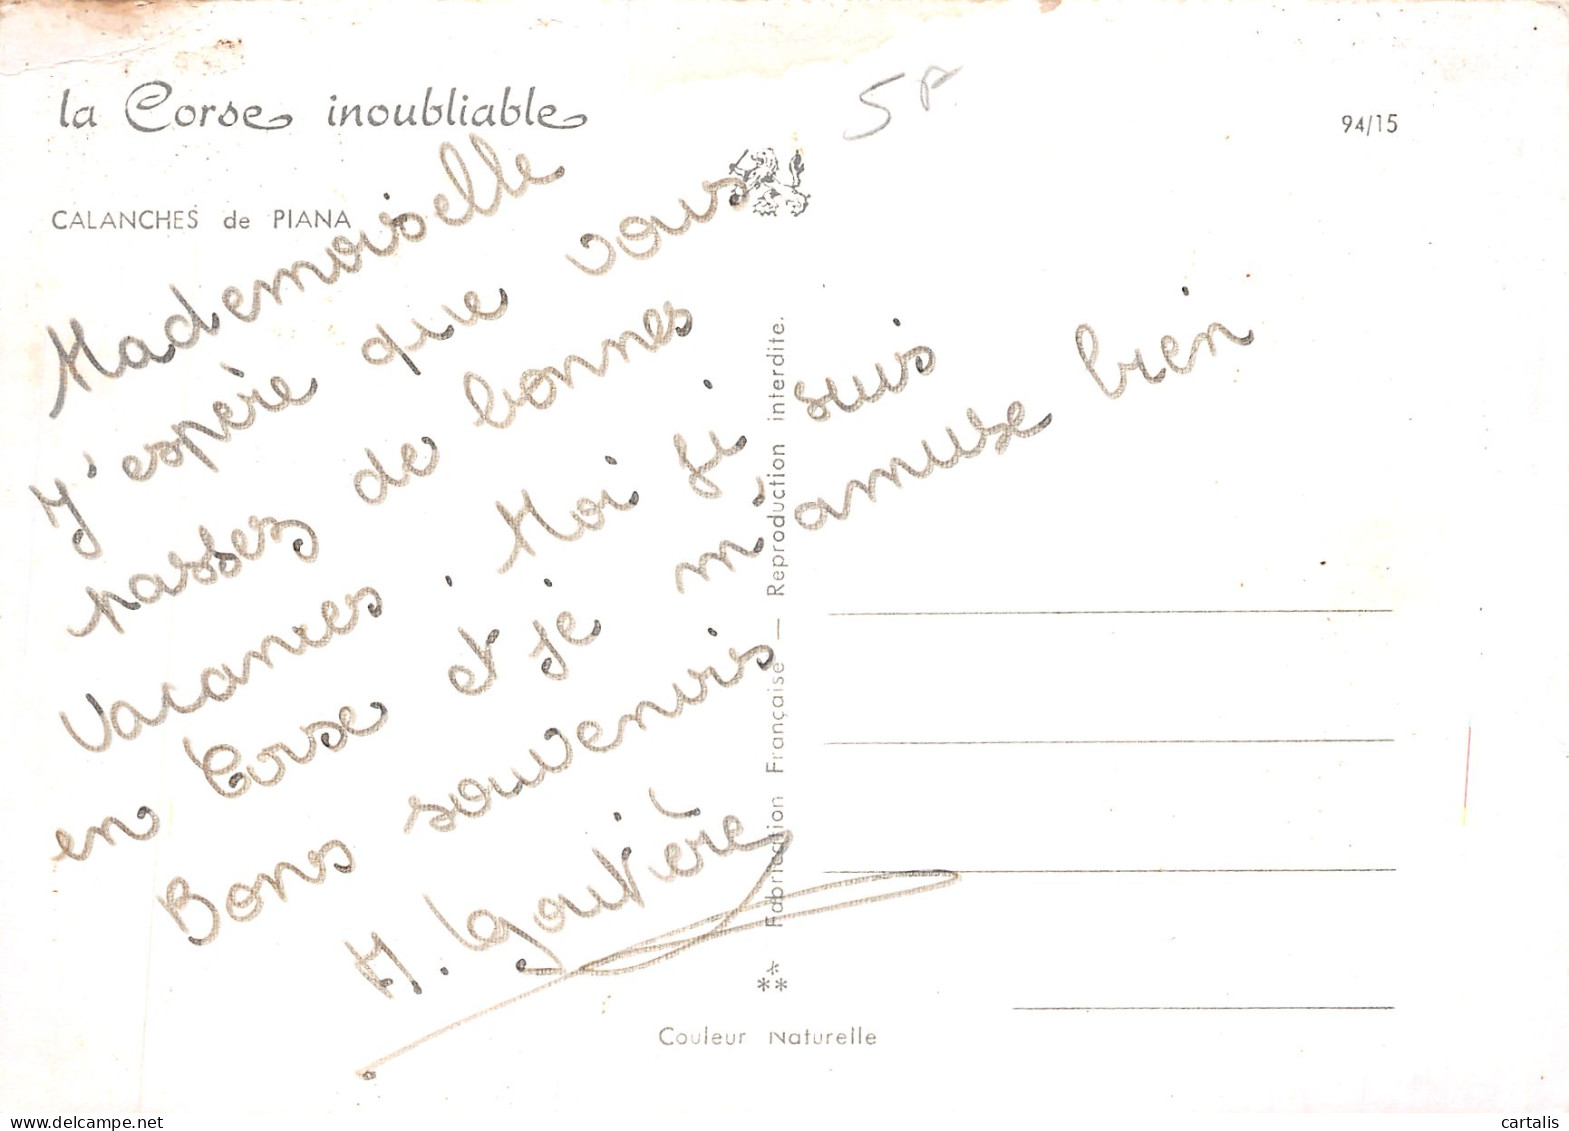 la Corse inoubliable
94/15
CALANCHES de PIANA
Mademoiselle
J'espère que vous
passes de bonnes
vacances. Moi je suis
en Corse et je m'amuse bien
Bons souvenirs
Fabrication Française — Reproduction interdite.
Couleur Naturelle
www.delcampe.net
cartalis